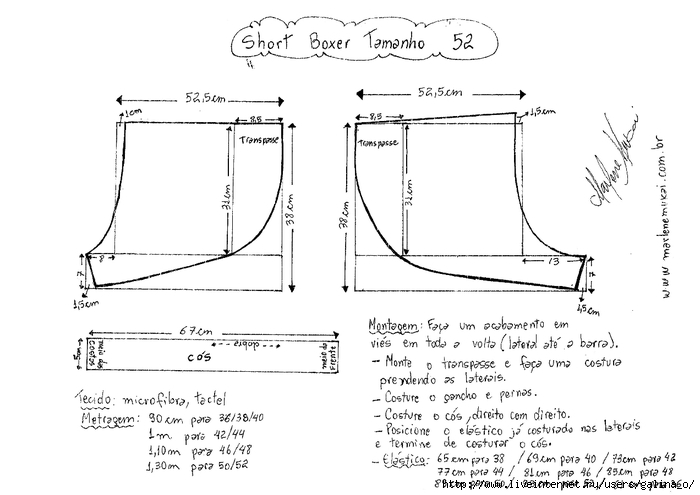 Short Boxer Tamanho 52
52,5cm
52,5cm
1cm
8,5
8,5
1,5cm
Transpasse
Transpasse
31cm
38cm
38cm
31cm
8
13
7
7
1,5cm
1,5cm
67cm
meio das costas
cós
dobra
meio da frente
Tecido: microfibra, tactel
Metragem: 90cm para 36/38/40
1m para 42/44
1,10m para 46/48
1,30m para 50/52
Montagem: Faça um acabamento em
viés em toda a volta (lateral até a barra).
- Monte o transpasse e faça uma costura
prendendo as laterais.
- Costure o gancho e pernas.
- Costure o cós, direito com direito.
- Posicione o elástico já costurado nas laterais
e termine de costurar o cós.
- Elástico: 65cm para 38 / 69cm para 40 / 73cm para 42
77cm para 44 / 81cm para 46 / 85cm para 48
http://www.liveinternet.ru/users/galinaio/
www.marlenemukai.com.br
Marlene Mukai